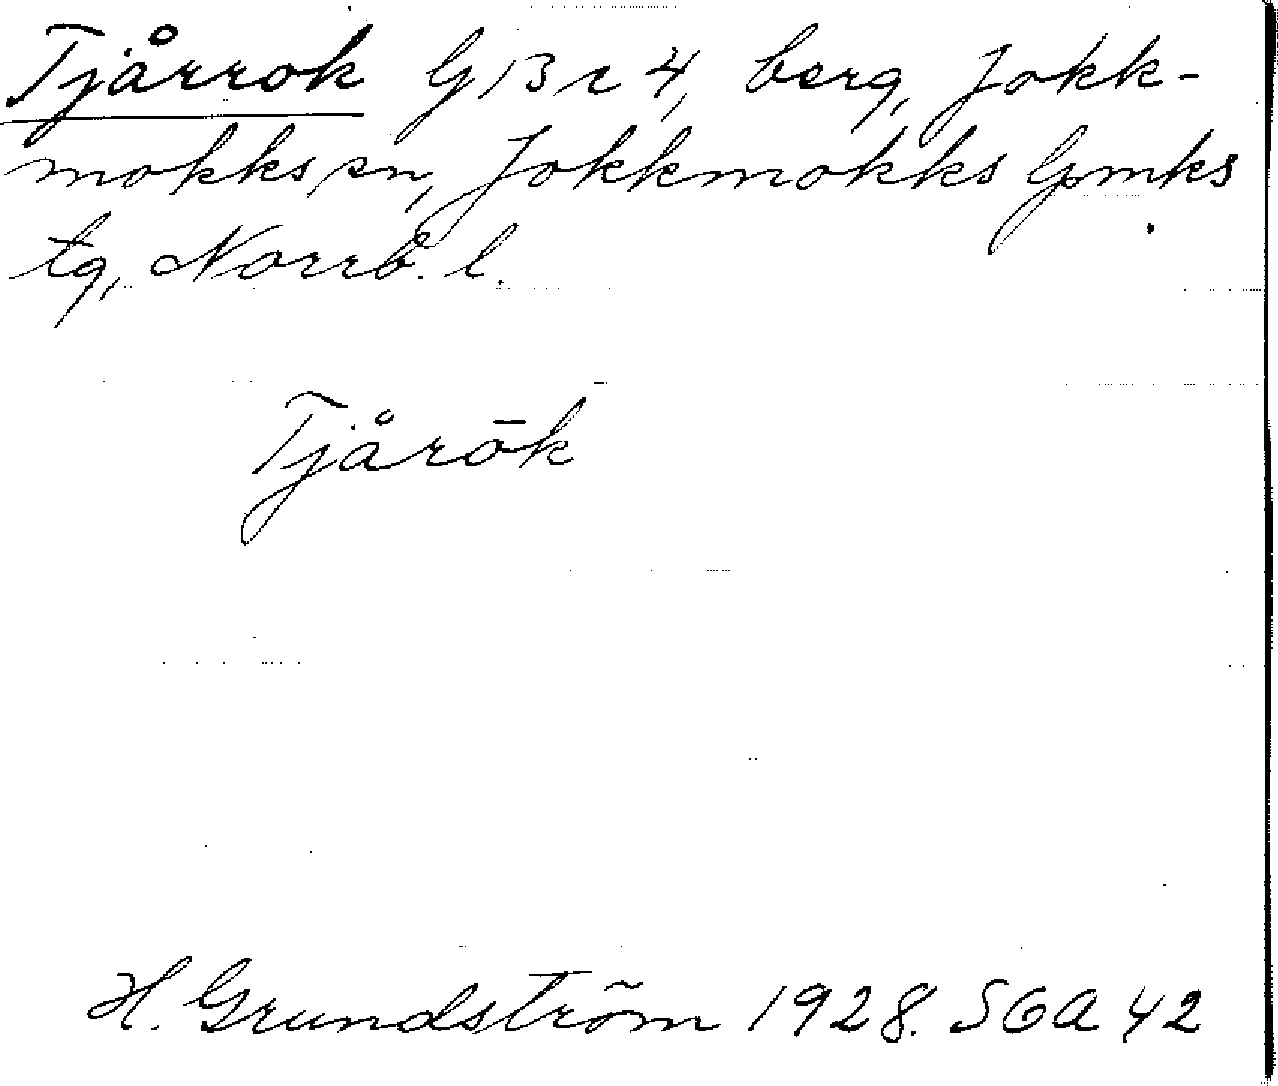 Tjårrok G 13 r 4, berg, Jokk-
mokks sn, Jokkmokks lpmks
tg, Norrb. l.
Tjårōk
H. Grundström 1928. SOA 42